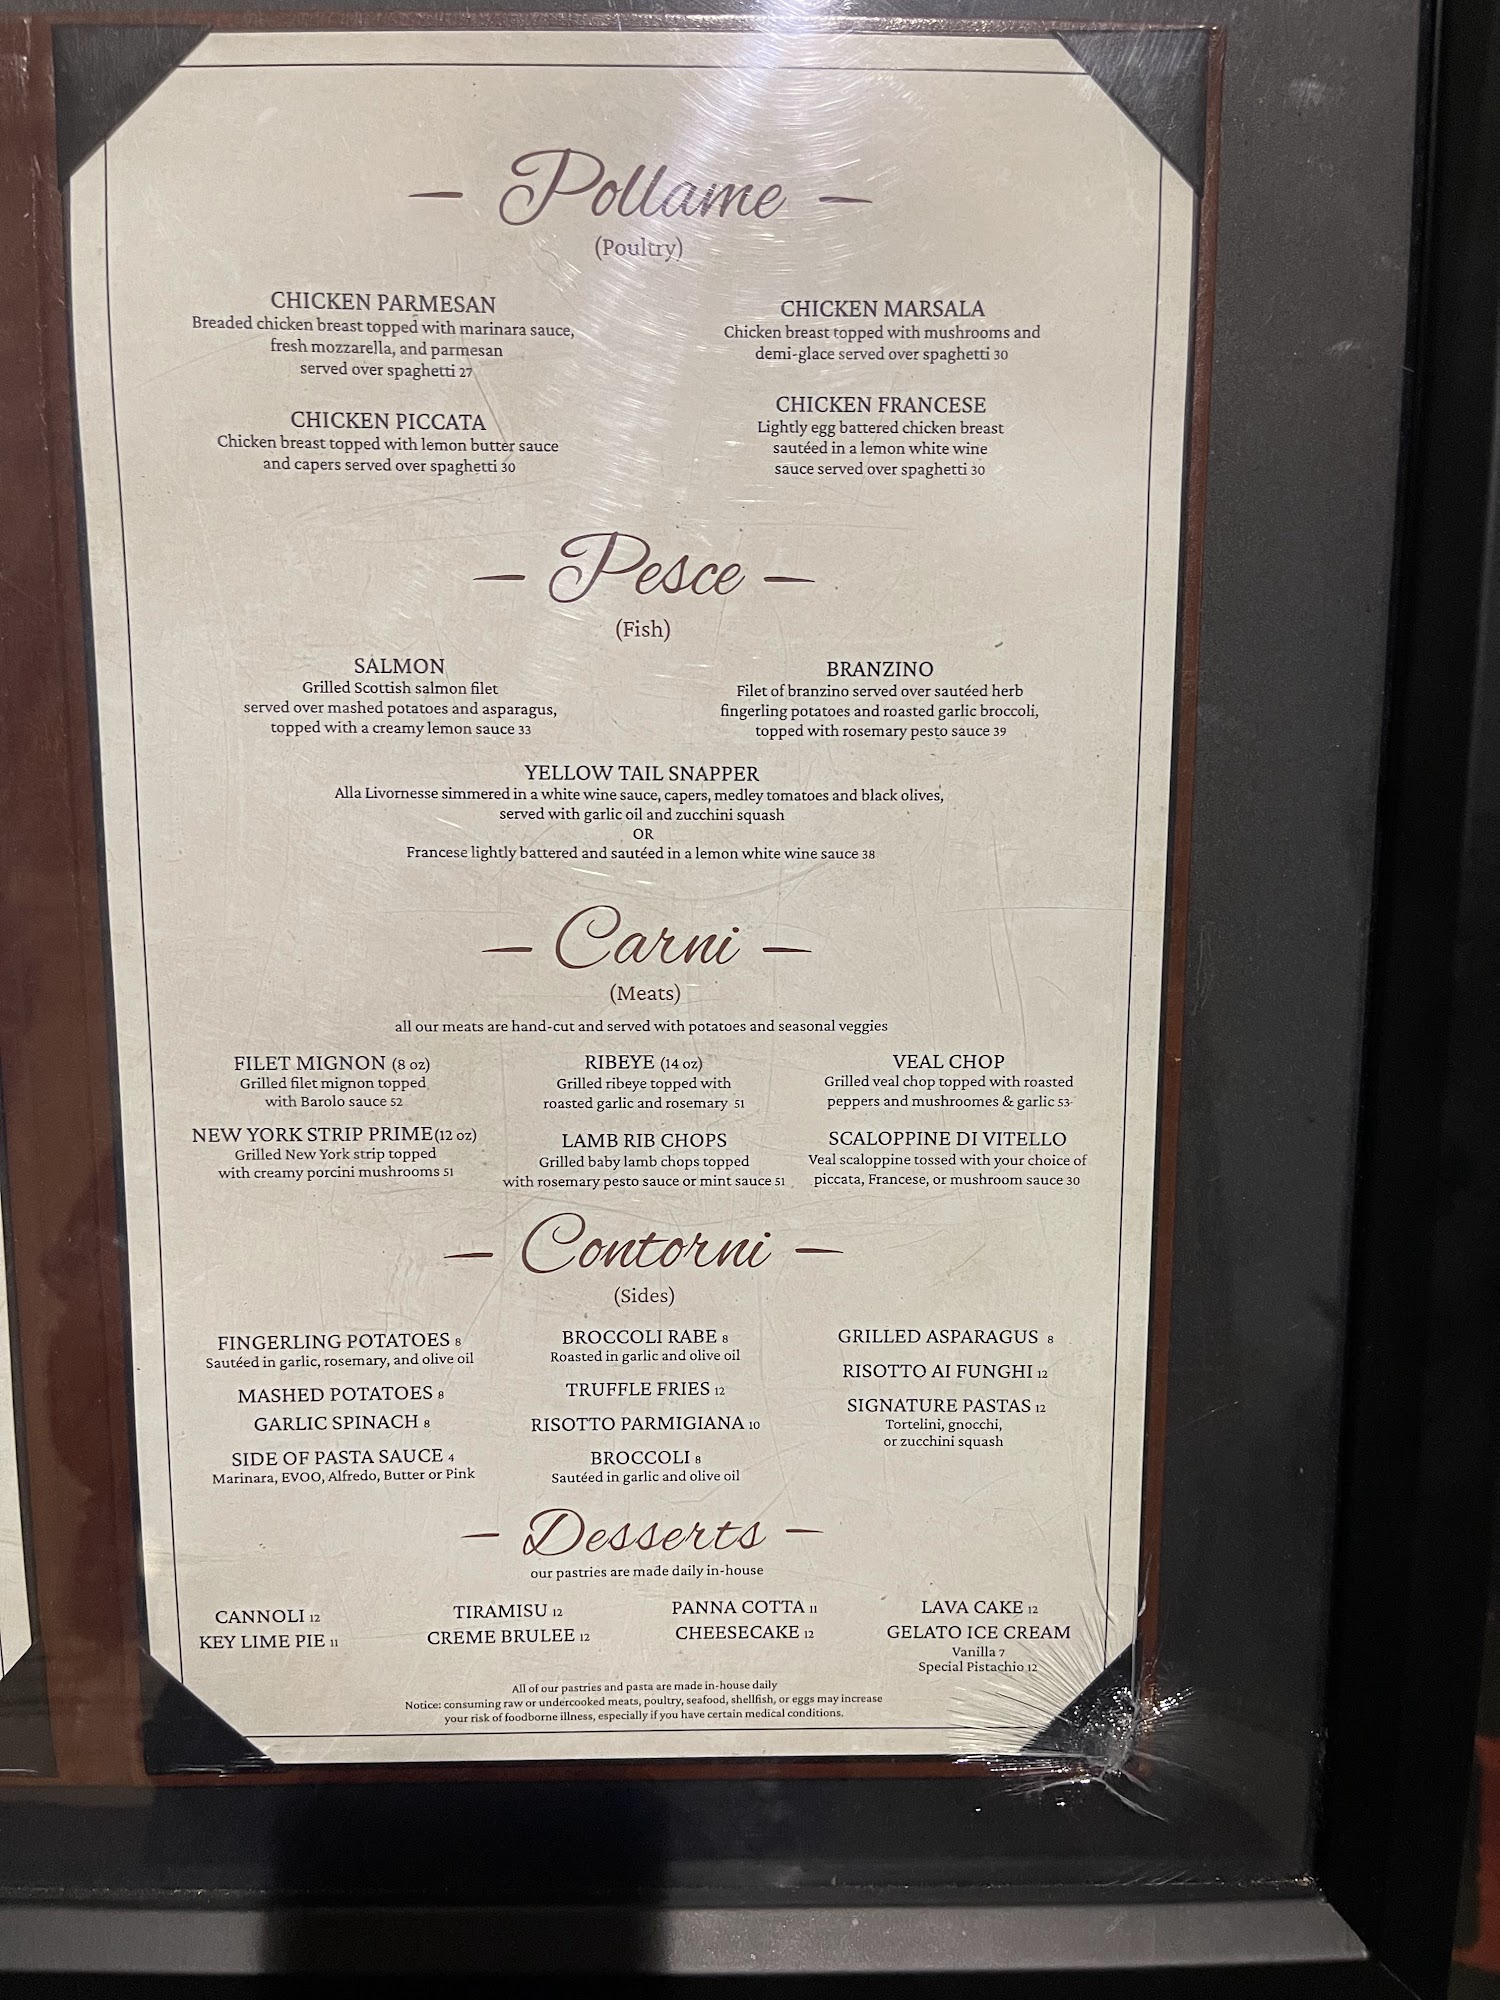 Pollame
(Poultry)
CHICKEN PARMESAN
Breaded chicken breast topped with marinara sauce,
fresh mozzarella, and parmesan
served over spaghetti 27
CHICKEN MARSALA
Chicken breast topped with mushrooms and
demi-glace served over spaghetti 30
CHICKEN PICCATA
Chicken breast topped with lemon butter sauce
and capers served over spaghetti 30
CHICKEN FRANCESE
Lightly egg battered chicken breast
sautéed in a lemon white wine
sauce served over spaghetti 30
Pesce
(Fish)
SALMON
Grilled Scottish salmon filet
served over mashed potatoes and asparagus,
topped with a creamy lemon sauce 33
BRANZINO
Filet of branzino served over sautéed herb
fingerling potatoes and roasted garlic broccoli,
topped with rosemary pesto sauce 39
YELLOW TAIL SNAPPER
Alla Livornesse simmered in a white wine sauce, capers, medley tomatoes and black olives,
served with garlic oil and zucchini squash
OR
Francese lightly battered and sautéed in a lemon white wine sauce 38
Carni
(Meats)
all our meats are hand-cut and served with potatoes and seasonal veggies
FILET MIGNON (8 oz)
Grilled filet mignon topped
with Barolo sauce 52
RIBEYE (14 oz)
Grilled ribeye topped with
roasted garlic and rosemary 51
VEAL CHOP
Grilled veal chop topped with roasted
peppers and mushroomes & garlic 53
NEW YORK STRIP PRIME(12 oz)
Grilled New York strip topped
with creamy porcini mushrooms 51
LAMB RIB CHOPS
Grilled baby lamb chops topped
with rosemary pesto sauce or mint sauce 51
SCALOPPINE DI VITELLO
Veal scaloppine tossed with your choice of
piccata, Francese, or mushroom sauce 30
Contorni
(Sides)
FINGERLING POTATOES 8
Sautéed in garlic, rosemary, and olive oil
MASHED POTATOES 8
GARLIC SPINACH 8
SIDE OF PASTA SAUCE 4
Marinara, EVOO, Alfredo, Butter or Pink
BROCCOLI RABE 8
Roasted in garlic and olive oil
TRUFFLE FRIES 12
RISOTTO PARMIGIANA 10
BROCCOLI 8
Sautéed in garlic and olive oil
GRILLED ASPARAGUS 8
RISOTTO AI FUNGHI 12
SIGNATURE PASTAS 12
Tortelini, gnocchi,
or zucchini squash
Desserts
our pastries are made daily in-house
CANNOLI 12
KEY LIME PIE 11
TIRAMISU 12
CREME BRULEE 12
PANNA COTTA 11
CHEESECAKE 12
LAVA CAKE 12
GELATO ICE CREAM
Vanilla 7
Special Pistachio 12
All of our pastries and pasta are made in-house daily
Notice: consuming raw or undercooked meats, poultry, seafood, shellfish, or eggs may increase
your risk of foodborne illness, especially if you have certain medical conditions.